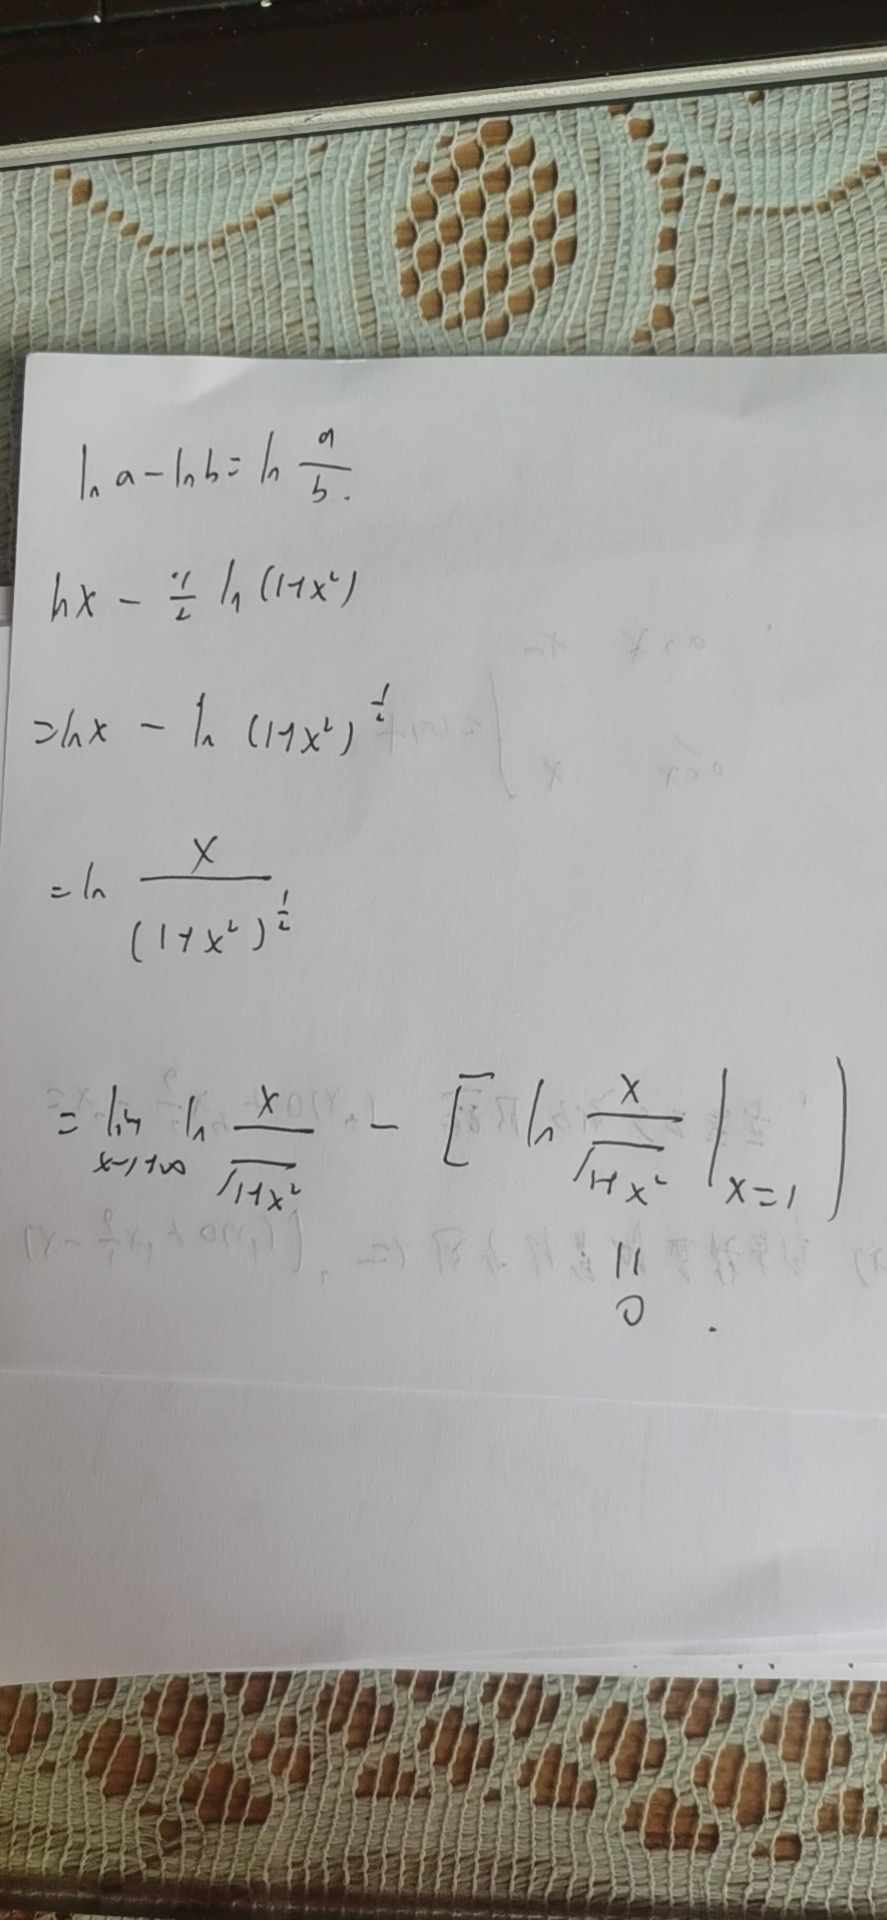 ln a - ln b = ln a/b.
ln x - 1/2 ln (1+x²)
= ln x - ln (1+x²)^(1/2)
= ln x/(1+x²)^(1/2)
= lim x→+∞ ln x/√(1+x²) - [ ln x/√(1+x²) | x=1 ]
||
0 .